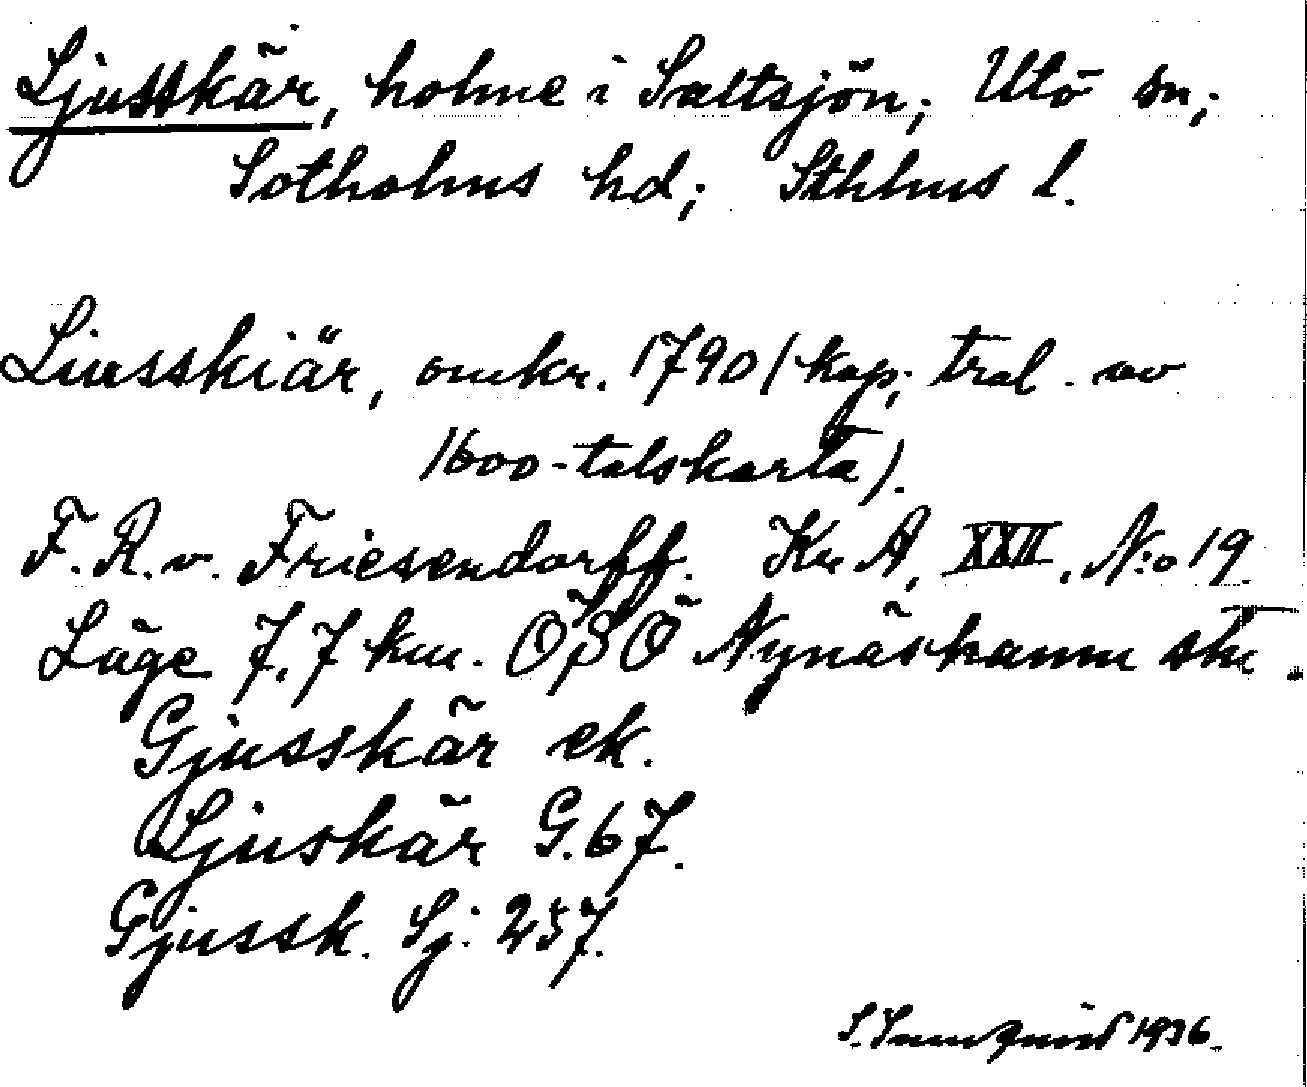 Ljusskär, holme i Saltsjön; Utö sn;
Sotholms hd; Sthlms l.
Liusskiär, omkr. 1790 (kop; trol. av
1600-talskarta).
F. R. v. Friesendorff. Kr A, XXII, N:o 19.
Läge 7,7 km. ÖSÖ Nynäshamn stn
Gjusskär ek.
Ljuskär G. 67.
Gjussk. Sj. 257.
1936.